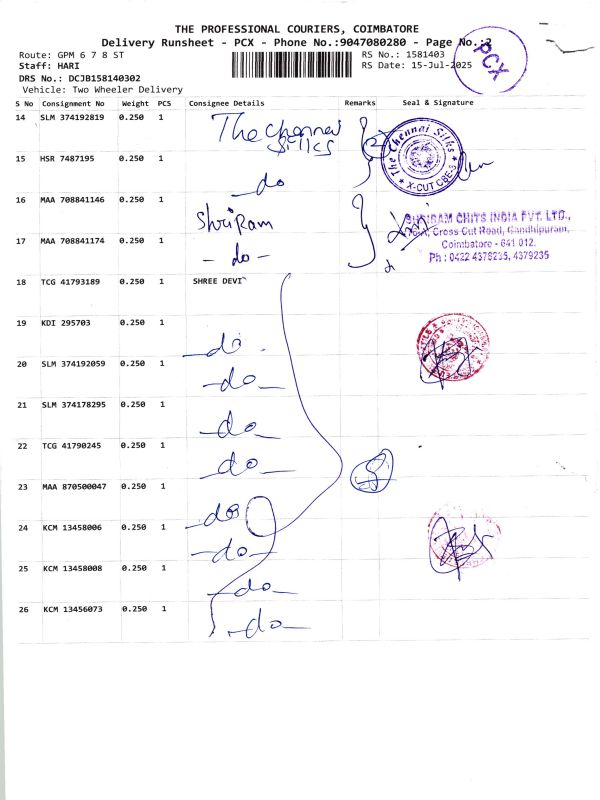 THE PROFESSIONAL COURIERS, COIMBATORE
Delivery Runsheet - PCX - Phone No.:9047080280 - Page No.:2
Route: GPM 6 7 8 ST
RS No.: 1581403
Staff: HARI
RS Date: 15-Jul-2025
DRS No.: DCJB158140302
Vehicle: Two Wheeler Delivery
PCX
S No Consignment No Weight PCS Consignee Details Remarks Seal & Signature
14 SLM 374192819 0.250 1 The Chennai Silks
The Chennai Silks
X-CUT CBE-
15 HSR 7487195 0.250 1 do
16 MAA 708841146 0.250 1 Shriram
SHRIRAM CHITS INDIA PVT. LTD.,
Cross Cut Road, Gandhipuram,
Coimbatore - 641 012.
Ph : 0422 4376235, 4379235
17 MAA 708841174 0.250 1 - do -
18 TCG 41793189 0.250 1 SHREE DEVI
19 KDI 295703 0.250 1 -do-
20 SLM 374192059 0.250 1 -do-
21 SLM 374178295 0.250 1 -do-
22 TCG 41790245 0.250 1 -do-
23 MAA 870500047 0.250 1 -do-
24 KCM 13458006 0.250 1 -do-
25 KCM 13458008 0.250 1 -do-
26 KCM 13456073 0.250 1 -do-